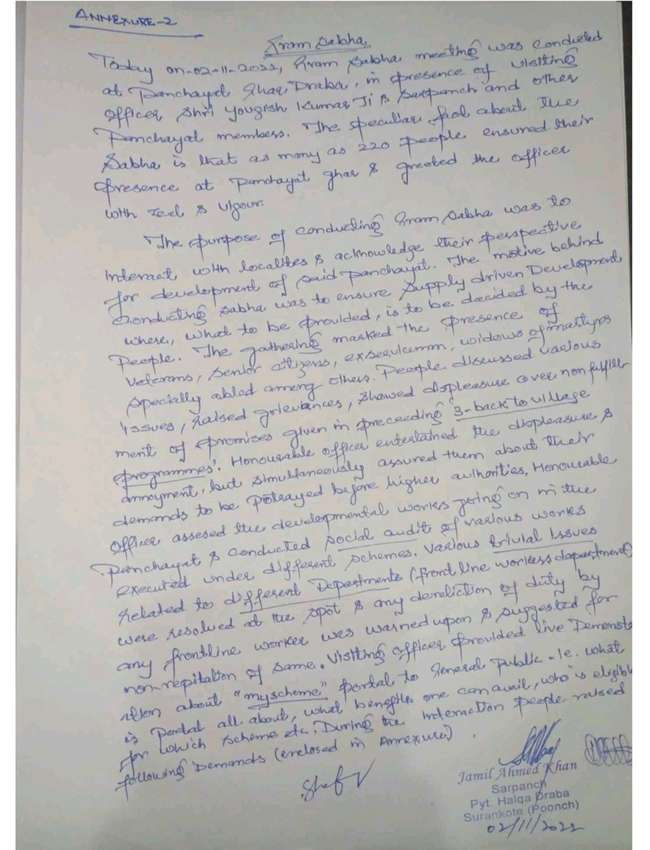 ANNEXURE-2
Gram Sabha
Today on-02-11-2022, Gram Sabha meeting was conducted
at Panchayat Ghar Draba, in presence of visiting
officer, Shri Yougesh Kumar Ji & Sarpanch and other
Panchayat members. The speculiar fact about the
Sabha is that as many as 220 people ensured their
presence at Panchayat ghar & greeted the officer
with zeel & vigour.
The purpose of conducting Gram Sabha was to
interact with localites & acknowledge their perspective
for development of said Panchayat. The motive behind
conducting Sabha was to ensure supply driven Development
where, what to be provided, is to be decided by the
People. The gathering marked the presence of
Veterans, senior citizens, exservicemn, widows of martyrs
specially abled among others. People discussed various
issues, raised grievances, showed displeasure over non fulfill-
ment of promises given in preceeding 3-back to village
programmes'. Honourable officer entertained the displeasure &
annoyment, but simultaneously assured them about their
demands to be potrayed before higher authorities. Honourable
officer assesed the developmental works going on in the
Panchayat & conducted social audit of various works
executed under different schemes. Various trivial issues
related to different Departments (front line workers department)
were resolved at the spot & any dereliction of duty by
any frontline worker was warned upon & suggested for
non-repitation of same. Visiting officer provided live Demonstr-
ation about "myscheme" portal to general public - ie. what
is portal all about, what benefits one can avail, who's eligible
for which scheme etc. During the interaction people raised
following Demands (enclosed in Annexure).
Jamil Ahmed Khan
Sarpanch
Pyt. Halqa Draba
Surankote (Poonch)
02/11/2022